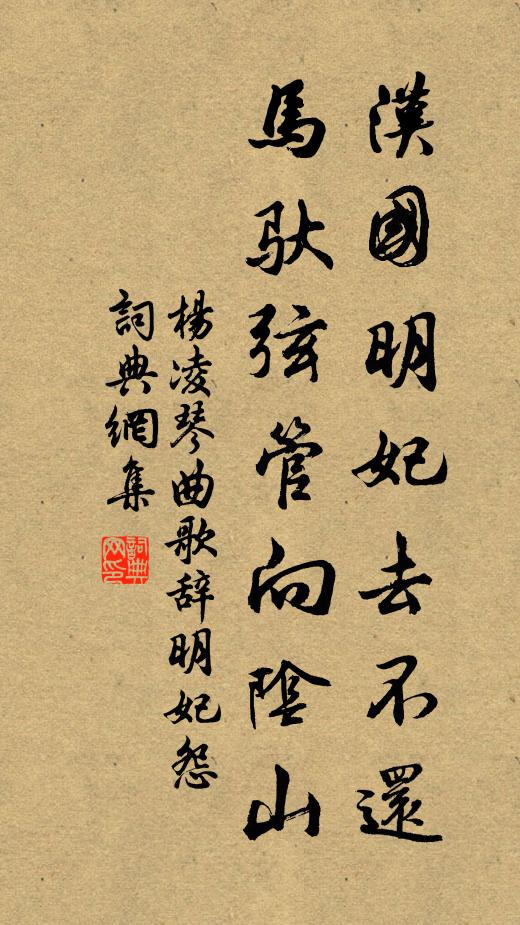 漢國明妃去不還
馬馱弦管向陰山
楊凌琴曲歌辞明妃怨
詞典網集
詞典网印